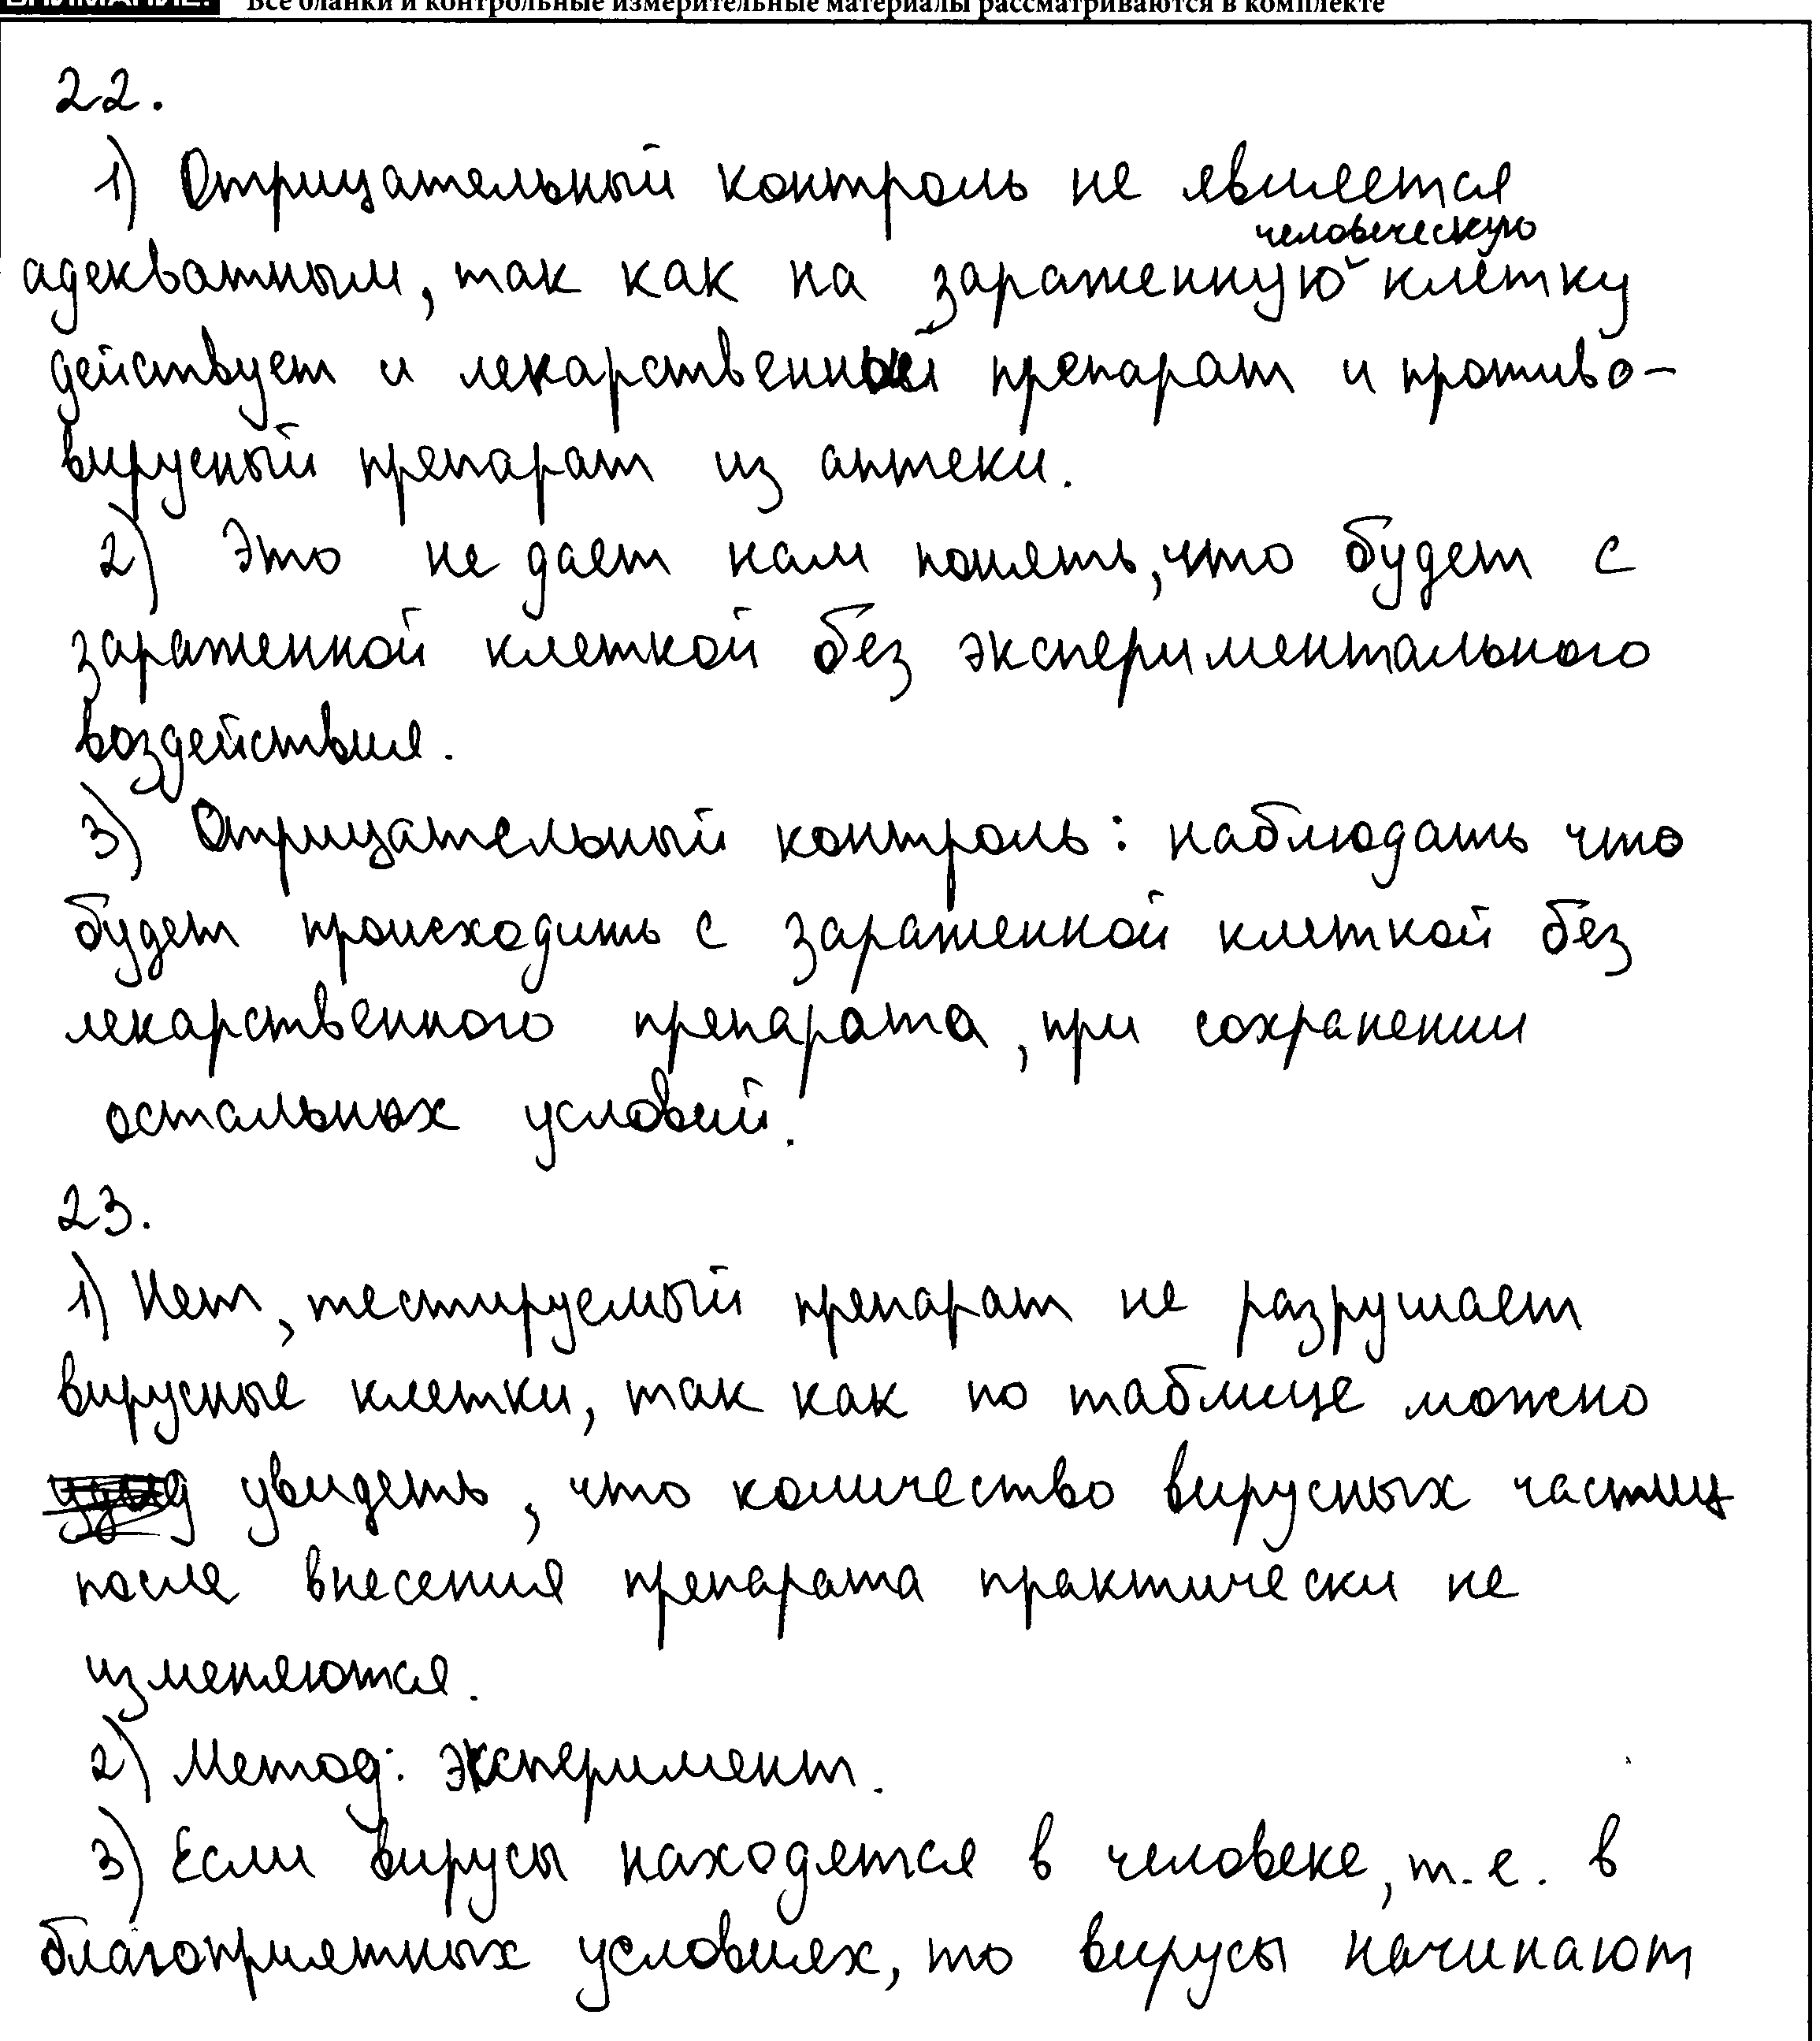 ВНИМАНИЕ! Все бланки и контрольные измерительные материалы рассматриваются в комплекте
22.
1) Отрицательный контроль не является
человеческую
адекватным, так как на зараженную клетку
действует и лекарственный препарат и противо-
вирусный препарат из аптеки.
2) Это не дает нам понять, что будет с
зараженной клеткой без экспериментального
воздействия.
3) Отрицательный контроль: наблюдать что
будет происходить с зараженной клеткой без
лекарственного препарата, при сохранении
остальных условий.
23.
1) Нет, тестируемый препарат не разрушает
вирусные клетки, так как по таблице можно
увидеть, что количество вирусных частиц
после внесения препарата практически не
изменяются.
2) Метод: эксперимент.
3) Если вирусы находятся в человеке, т.е. в
благоприятных условиях, то вирусы начинают